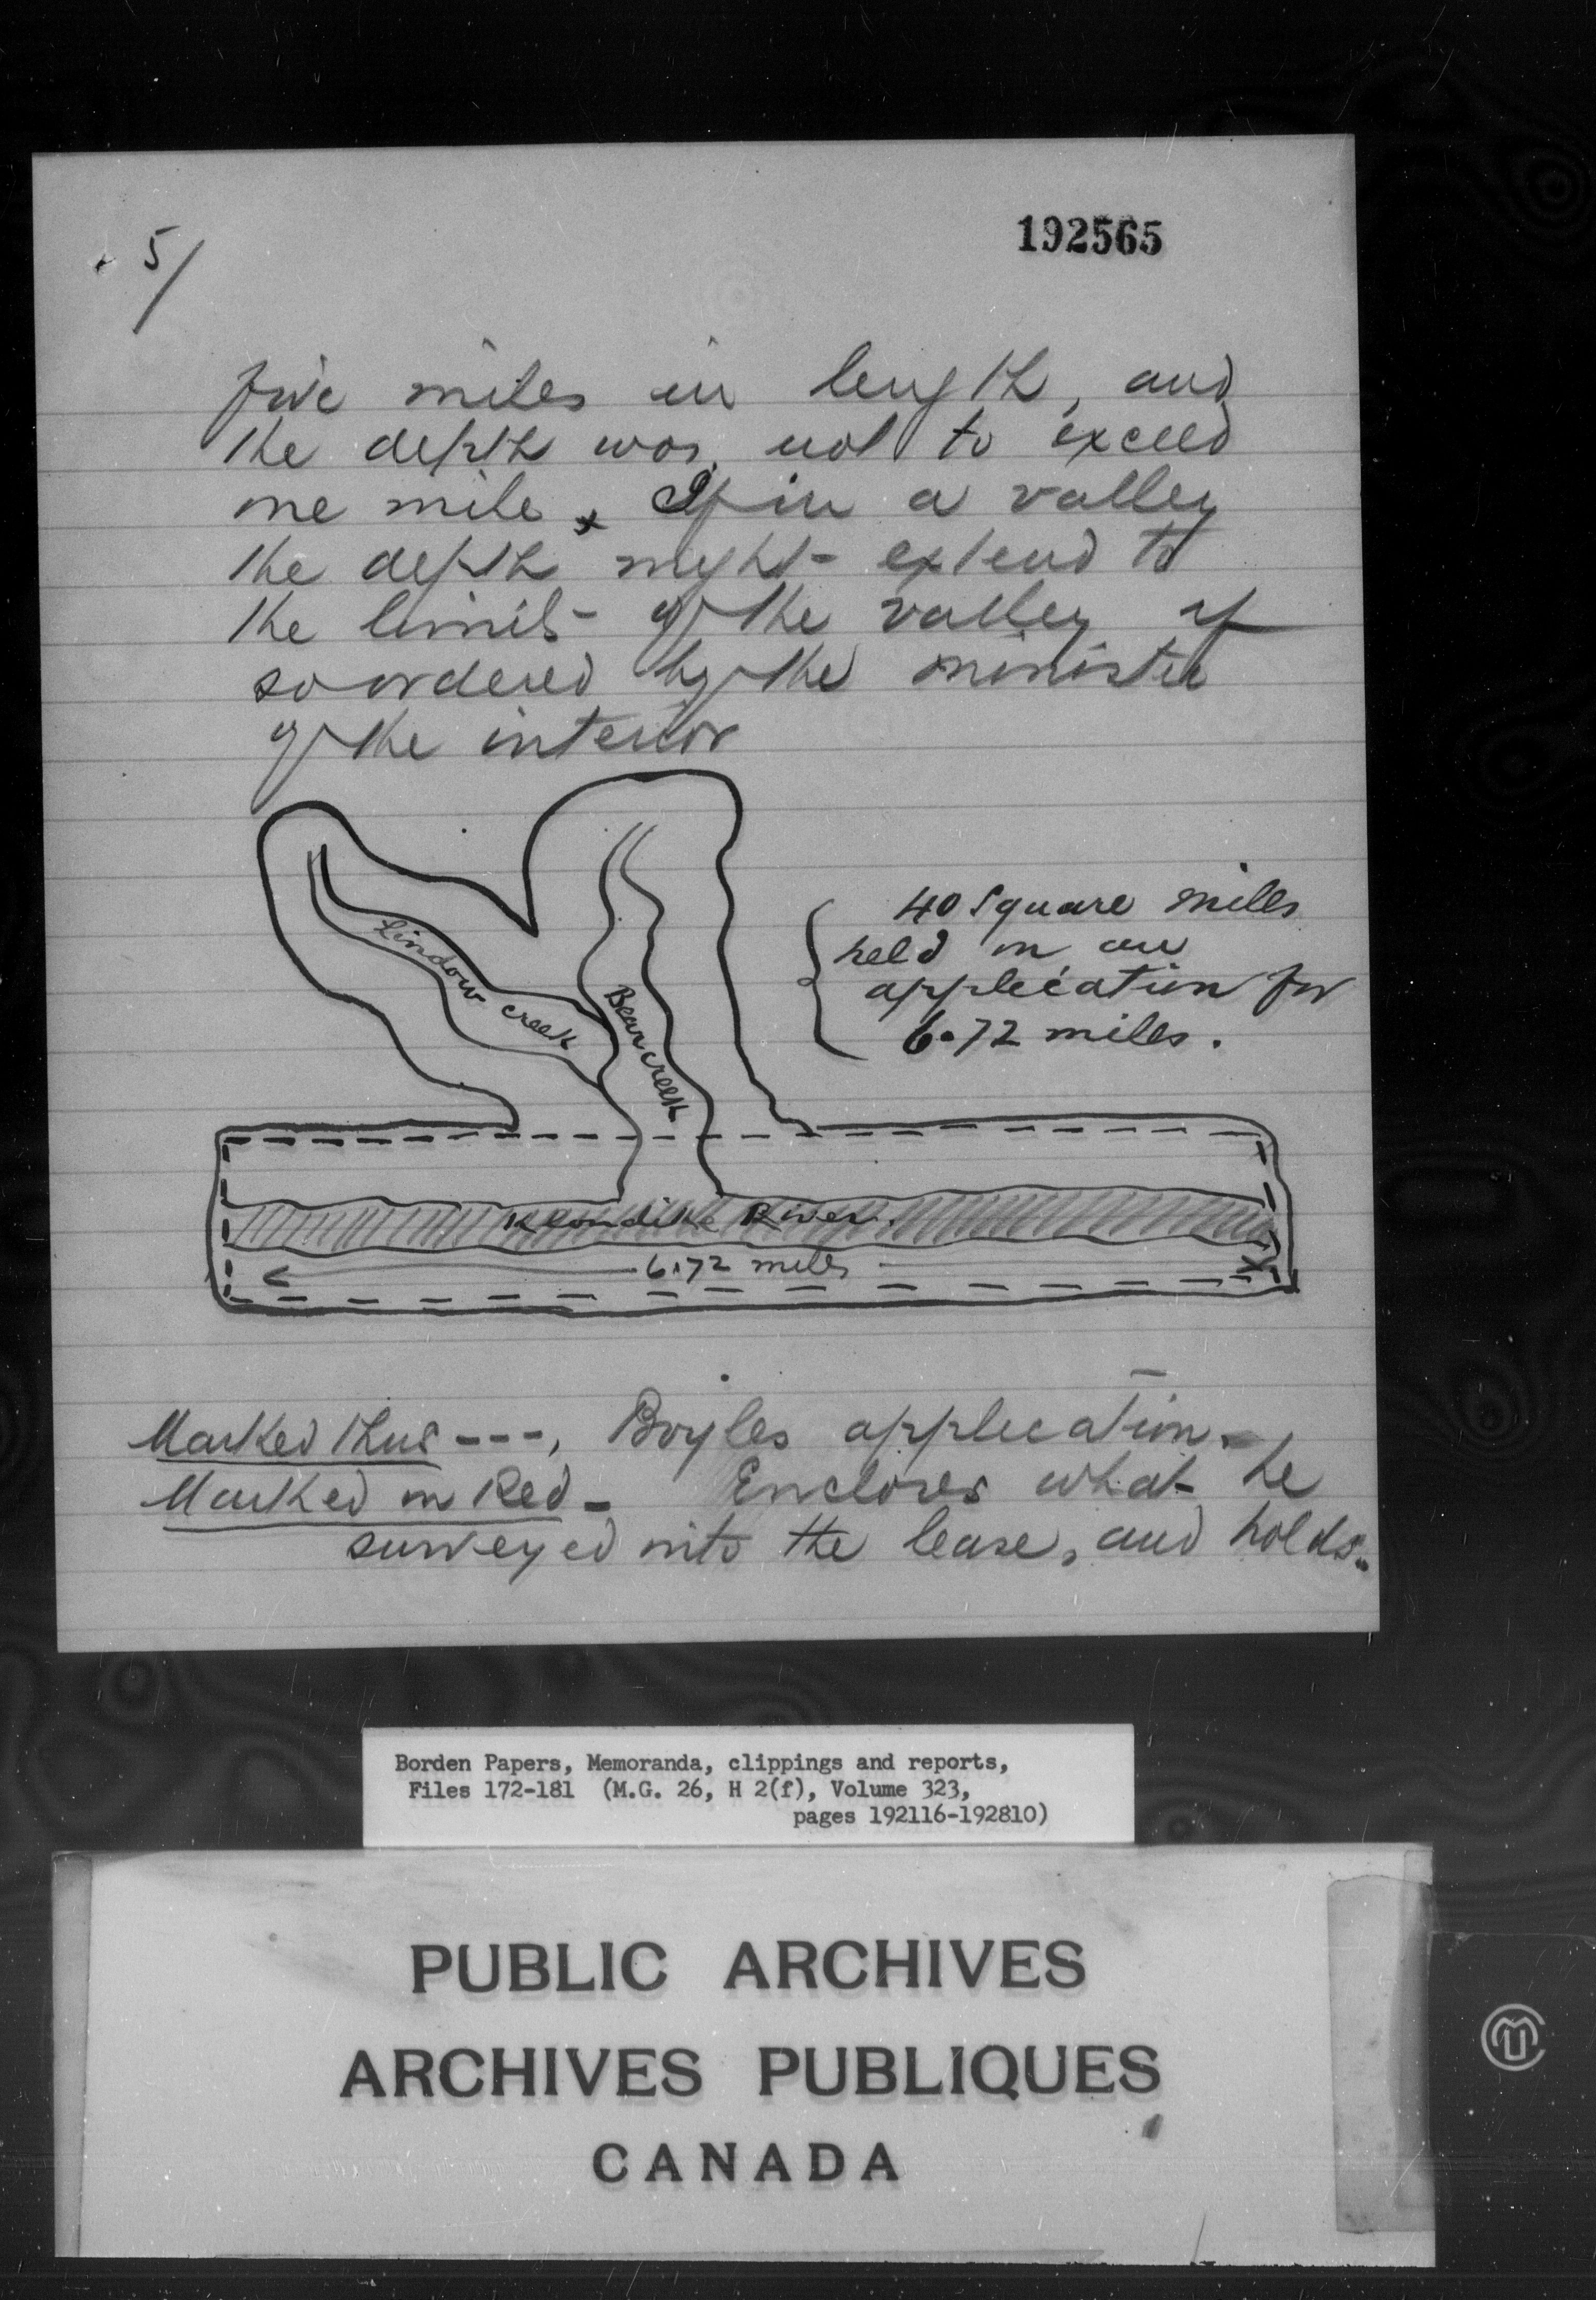 5/
192565
five miles in length, and
the depth was not to exceed
one mile. If in a valley
the depth might extend to
the limits of the valley if
so ordered by the minister
of the interior
40 Square miles
held on an
application for
6.72 miles.
Lindow creek
Bear creek
Klondike River.
6.72 miles
Marked thus ---, Boyles application.
Marked in Red - Encloses what he
surveyed into the lease, and holds.
Borden Papers, Memoranda, clippings and reports,
Files 172-181 (M.G. 26, H 2(f), Volume 323,
pages 192116-192810)
PUBLIC ARCHIVES
ARCHIVES PUBLIQUES
CANADA